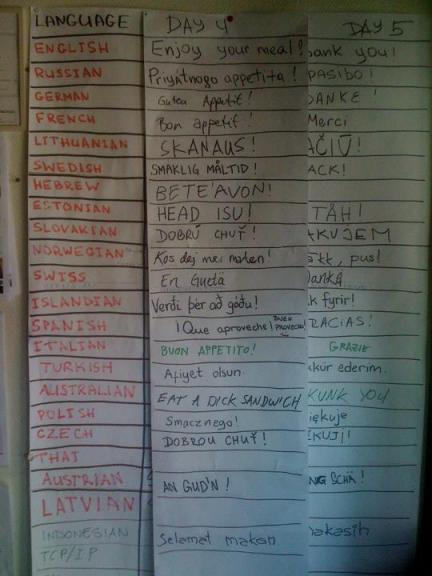 LANGUAGE DAY 4 DAY 5
ENGLISH Enjoy your meal! ank you!
RUSSIAN Priyatnogo appetita! pasibo!
GERMAN Guten Appetit! DANKE!
FRENCH Bon appetit! Merci
LITHUANIAN SKANAUS! AČIŪ!
SWEDISH SMAKLIG MÅLTID! ACK!
HEBREW BETE'AVON!
ESTONIAN HEAD ISU! TÄH!
SLOVAKIAN DOBRÚ CHUŤ! AKUJEM
NORWEGIAN Kos dej mei maten! kk, pus!
SWISS En Guetä anka
ISLANDIAN Verði þér að góðu! k fyrir!
SPANISH ¡Que aproveche! BUEN PROVECHO! RACIAS!
ITALIAN BUON APPETITO! GRAZIE
TURKISH Afiyet olsun. ekkür ederim.
AUSTRALIAN EAT A DICK SANDWICH KUNK YOU
POLISH Smacznego! iękuje
CZECH DOBROU CHUŤ! ĚKUJI!
THAI
AUSTRIAN AN GUD'N! NG SCHÄ!
LATVIAN
INDONESIAN Selamat makan makasih
TCP/IP